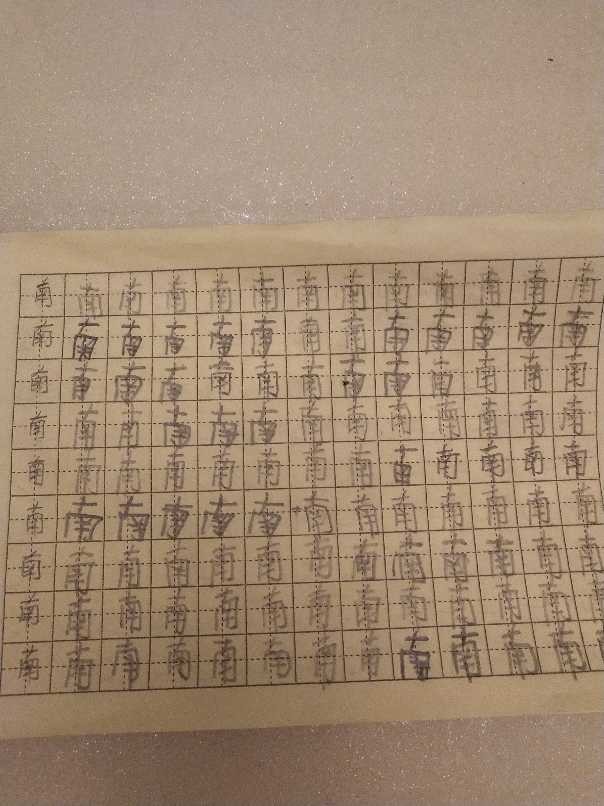 南南南南南南南南南南南南南
南南南南南南南南南南南南南
南南南南南南南南南南南南南
南南南南南南南南南南南南南
南南南南南南南南南南南南南
南南南南南南南南南南南南南
南南南南南南南南南南南南南
南南南南南南南南南南南南南
南南南南南南南南南南南南南